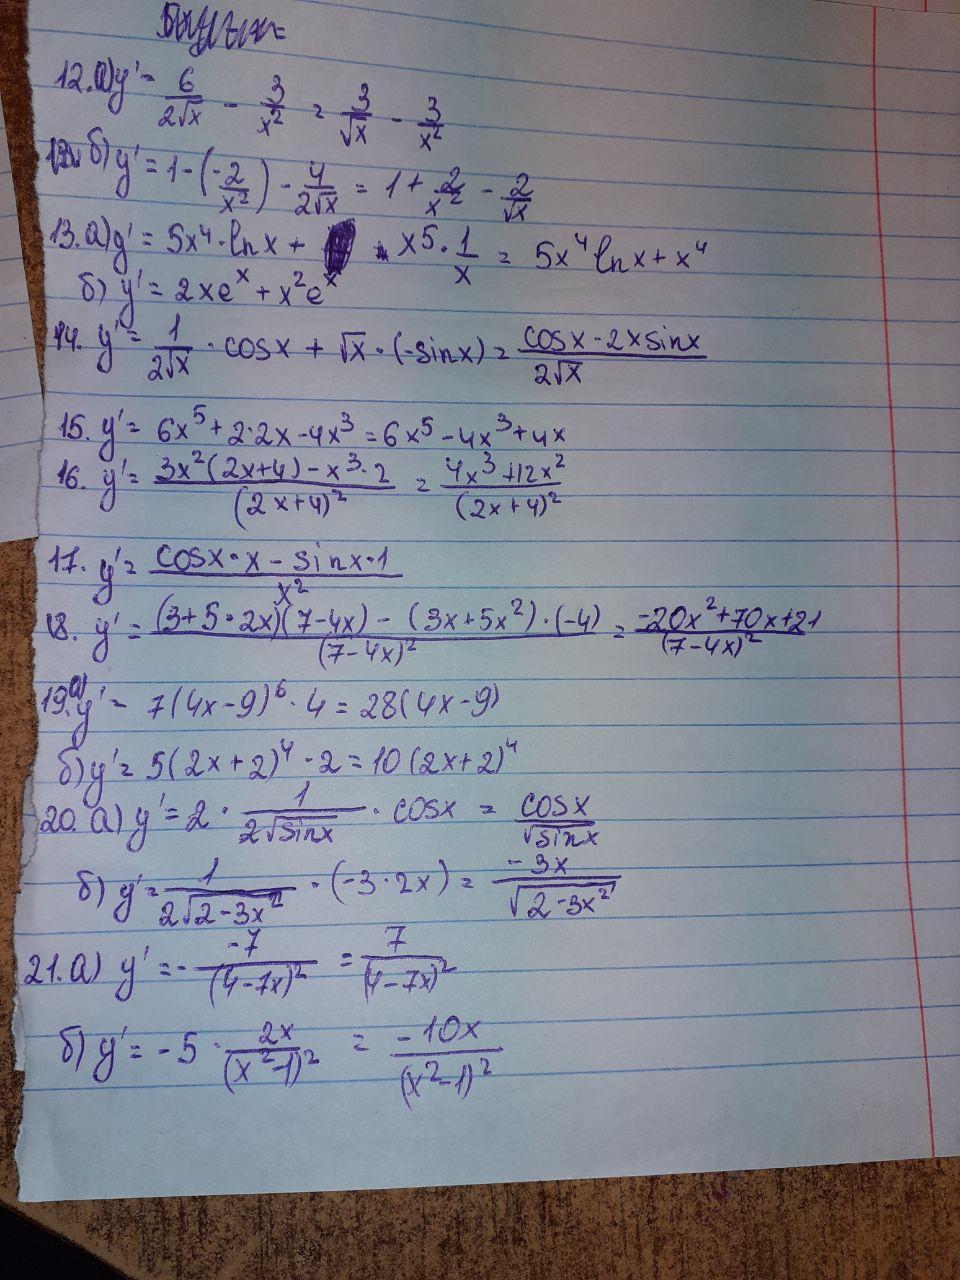 12. а) y' = 6/(2√x) - 3/x² = 3/√x - 3/x²
б) y' = 1 - (-2/x²) - 4/(2√x) = 1 + 2/x² - 2/√x
13. а) y' = 5x⁴ · ln x + x⁵ · 1/x = 5x⁴ ln x + x⁴
б) y' = 2xeˣ + x²eˣ
14. y' = 1/(2√x) · cosx + √x · (-sinx) = (cosx - 2x sinx)/(2√x)
15. y' = 6x⁵ + 2·2x - 4x³ = 6x⁵ - 4x³ + 4x
16. y' = (3x²(2x+4) - x³·2)/(2x+4)² = (4x³ + 12x²)/(2x+4)²
17. y' = (cosx · x - sinx · 1)/x²
18. y' = ((3+5·2x)(7-4x) - (3x+5x²)·(-4))/(7-4x)² = (-20x²+70x+21)/(7-4x)²
19. а) y' = 7(4x-9)⁶ · 4 = 28(4x-9)
б) y' = 5(2x+2)⁴ · 2 = 10(2x+2)⁴
20. а) y' = 2 · 1/(2√sinx) · cosx = cosx/√sinx
б) y' = 1/(2√(2-3x²)) · (-3·2x) = -3x/√(2-3x²)
21. а) y' = - -7/(4-7x)² = 7/(4-7x)²
б) y' = -5 · 2x/(x²-1)² = -10x/(x²-1)²